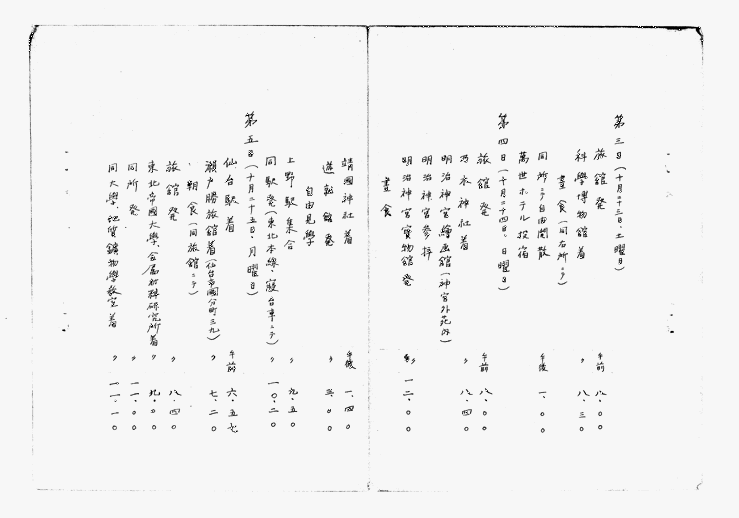 第三日(十月二十三日、土曜日)
旅館発 午前 八.〇〇
科學博物館着 〃 八.三〇
晝食(同右所ニテ)
同所ニテ自由開散 午後 一.〇〇
萬世ホテル投宿
第四日(十月二十四日、日曜日)
旅館発 午前 八.〇〇
乃木神社着 〃 八.四〇
明治神宮繪画館(神宮外苑内)
明治神宮参拝
明治神宮寳物館発 〃 一二.〇〇
晝食
靖國神社着 午後 一.四〇
遊就館発 〃 三.〇〇
自由見學
上野駅集合 〃 九.五〇
同駅発(東北本線、寝台車ニテ) 〃 一〇.二〇
第五日(十月二十五日、月曜日)
仙台駅着 午前 六.五七
瀬戸勝旅館着(仙台市國分町三九) 七.二〇
朝食(同旅館ニテ)
旅館発 〃 八.四〇
東北帝國大學、金属材料研究所着 〃 九.〇〇
同所発 〃 一一.〇〇
同大學、地質鑛物學教室着 〃 一一.一〇